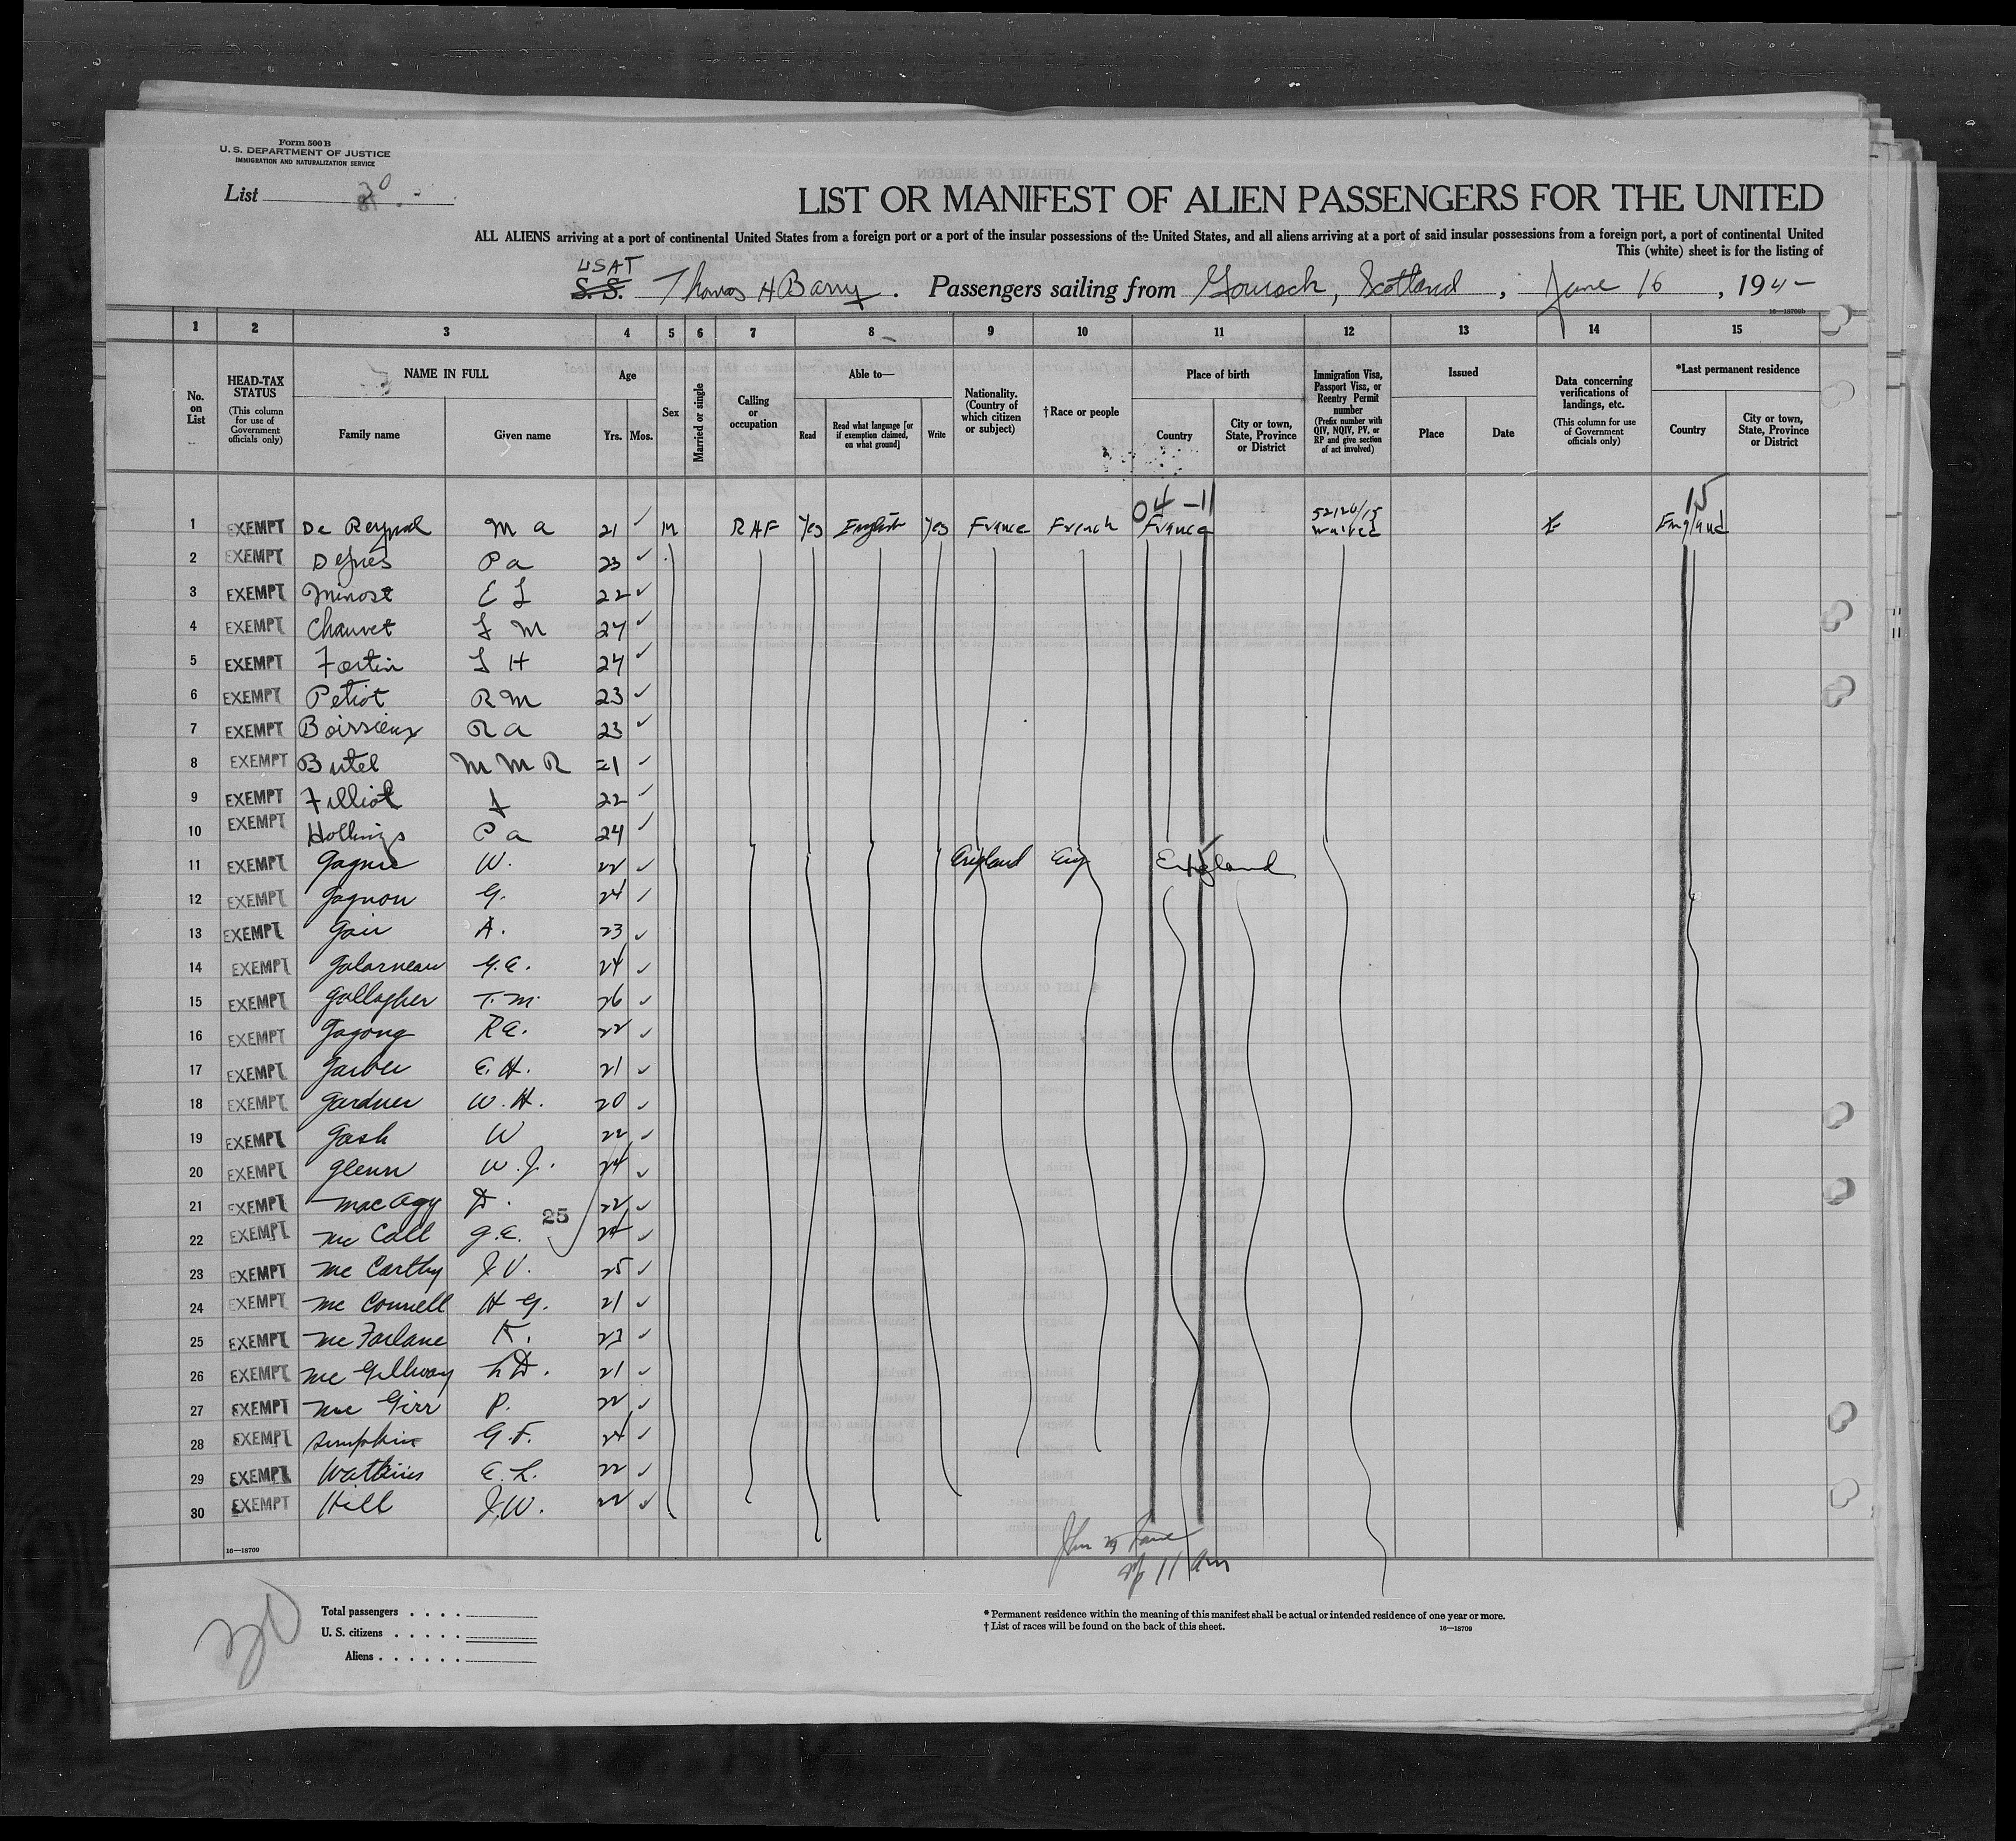 Form 500 B
U. S. DEPARTMENT OF JUSTICE
IMMIGRATION AND NATURALIZATION SERVICE
List 30
LIST OR MANIFEST OF ALIEN PASSENGERS FOR THE UNITED
ALL ALIENS arriving at a port of continental United States from a foreign port or a port of the insular possessions of the United States, and all aliens arriving at a port of said insular possessions from a foreign port, a port of continental United
This (white) sheet is for the listing of
USAT
S. S. Thomas H Barry. Passengers sailing from Gourock, Scotland, June 16, 194
16—18709b
1 2 3 4 5 6 7 8 9 10 11 12 13 14 15
No. on List
HEAD-TAX STATUS (This column for use of Government officials only)
NAME IN FULL
Family name Given name
Age
Yrs. Mos.
Sex
Married or single
Calling or occupation
Able to—
Read
Read what language [or if exemption claimed, on what ground]
Write
Nationality. (Country of which citizen or subject)
†Race or people
Place of birth
Country
City or town, State, Province or District
Immigration Visa, Passport Visa, or Reentry Permit number (Prefix number with QIV, NQIV, PV, or RP and give section of act involved)
Issued
Place Date
Data concerning verifications of landings, etc. (This column for use of Government officials only)
*Last permanent residence
Country
City or town, State, Province or District
04-11 15
1 EXEMPT De Reynal M A 21 M RAF Yes English Yes France French France 52126/15 waived England
2 EXEMPT P A 23
3 EXEMPT Minost E L 22
4 EXEMPT Chauvet J M 24
5 EXEMPT Fortin J H 24
6 EXEMPT Petiot R M 23
7 EXEMPT Boissieux R A 23
8 EXEMPT Butel M M R 21
9 EXEMPT Filliol J 22
10 EXEMPT Hollings P A 24
11 EXEMPT Gagne W. 22 England Eng England
12 EXEMPT Gagnon G. 24
13 EXEMPT Gair A. 23
14 EXEMPT Galarneau G.E. 24
15 EXEMPT Gallagher T.M. 26
16 EXEMPT R.E. 22
17 EXEMPT Garber E.H. 21
18 EXEMPT Gardner W.H. 20
19 EXEMPT Gash W 22
20 EXEMPT Glenn W.J. 24
21 EXEMPT MacAgy D. 22
25
22 EXEMPT Mc Call G.E. 24
23 EXEMPT Mc Carthy J.V. 25
24 EXEMPT Mc Connell H G. 21
25 EXEMPT Mc Farlane K. 23
26 EXEMPT L.D. 21
27 EXEMPT Mc Girr P. 22
28 EXEMPT Simpkin G.F. 24
29 EXEMPT Watkins E.L. 22
30 EXEMPT Hill J.W. 22
16—18709
11 am
30
Total passengers . . . .
U. S. citizens . . . . .
Aliens . . . . . .
* Permanent residence within the meaning of this manifest shall be actual or intended residence of one year or more.
† List of races will be found on the back of this sheet.
16—18709